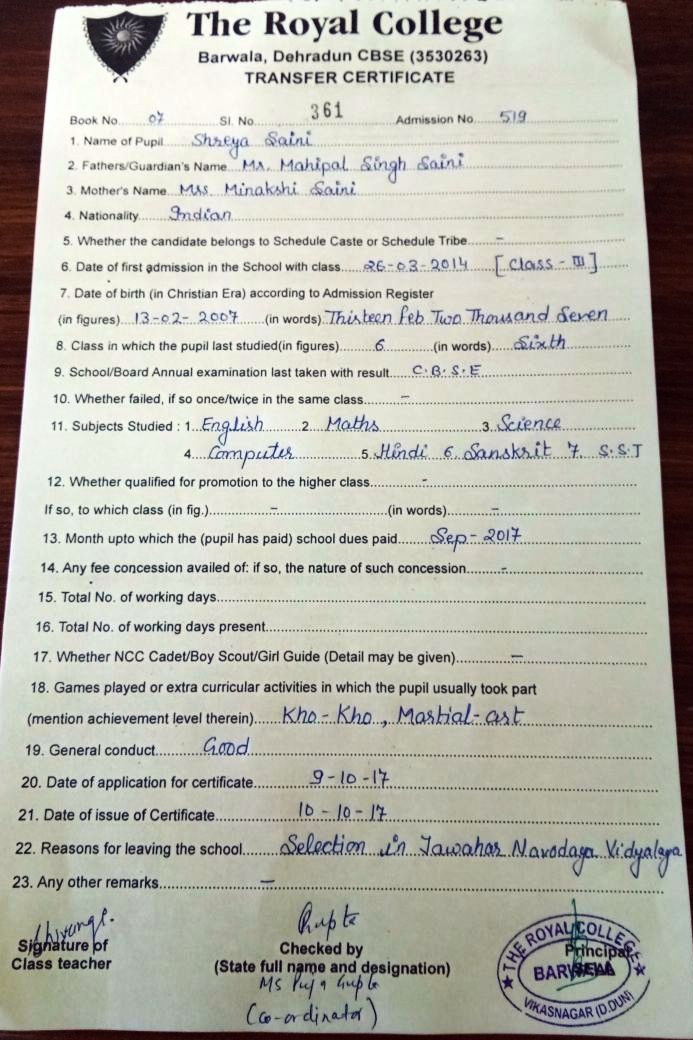 The Royal College
Barwala, Dehradun CBSE (3530263)
TRANSFER CERTIFICATE
Book No. 07 Sl. No. 361 Admission No. 519
1. Name of Pupil Shreya Saini
2. Fathers/Guardian's Name Mr. Mahipal Singh Saini
3. Mother's Name Mrs. Minakshi Saini
4. Nationality Indian
5. Whether the candidate belongs to Schedule Caste or Schedule Tribe –
6. Date of first admission in the School with class 26-03-2014 [Class - III]
7. Date of birth (in Christian Era) according to Admission Register
(in figures) 13-02-2007 (in words) Thirteen Feb Two Thousand Seven
8. Class in which the pupil last studied(in figures) 6 (in words) Sixth
9. School/Board Annual examination last taken with result C.B.S.E
10. Whether failed, if so once/twice in the same class –
11. Subjects Studied : 1. English 2. Maths 3. Science
4. Computer 5. Hindi 6. Sanskrit 7. S.S.T
12. Whether qualified for promotion to the higher class -
If so, to which class (in fig.) – (in words) –
13. Month upto which the (pupil has paid) school dues paid Sep - 2017
14. Any fee concession availed of: if so, the nature of such concession -
15. Total No. of working days
16. Total No. of working days present
17. Whether NCC Cadet/Boy Scout/Girl Guide (Detail may be given) –
18. Games played or extra curricular activities in which the pupil usually took part
(mention achievement level therein) Kho-Kho, Martial-art
19. General conduct Good
20. Date of application for certificate 9-10-17
21. Date of issue of Certificate 10-10-17
22. Reasons for leaving the school Selection in Jawahar Navodaya Vidyalaya
23. Any other remarks –
Gupta
Signature of
Class teacher
Checked by
(State full name and designation)
MS Puja Gupta
(Co-ordinator)
THE ROYAL COLLEGE
Principal
BARWALA
VIKASNAGAR (D.DUN)